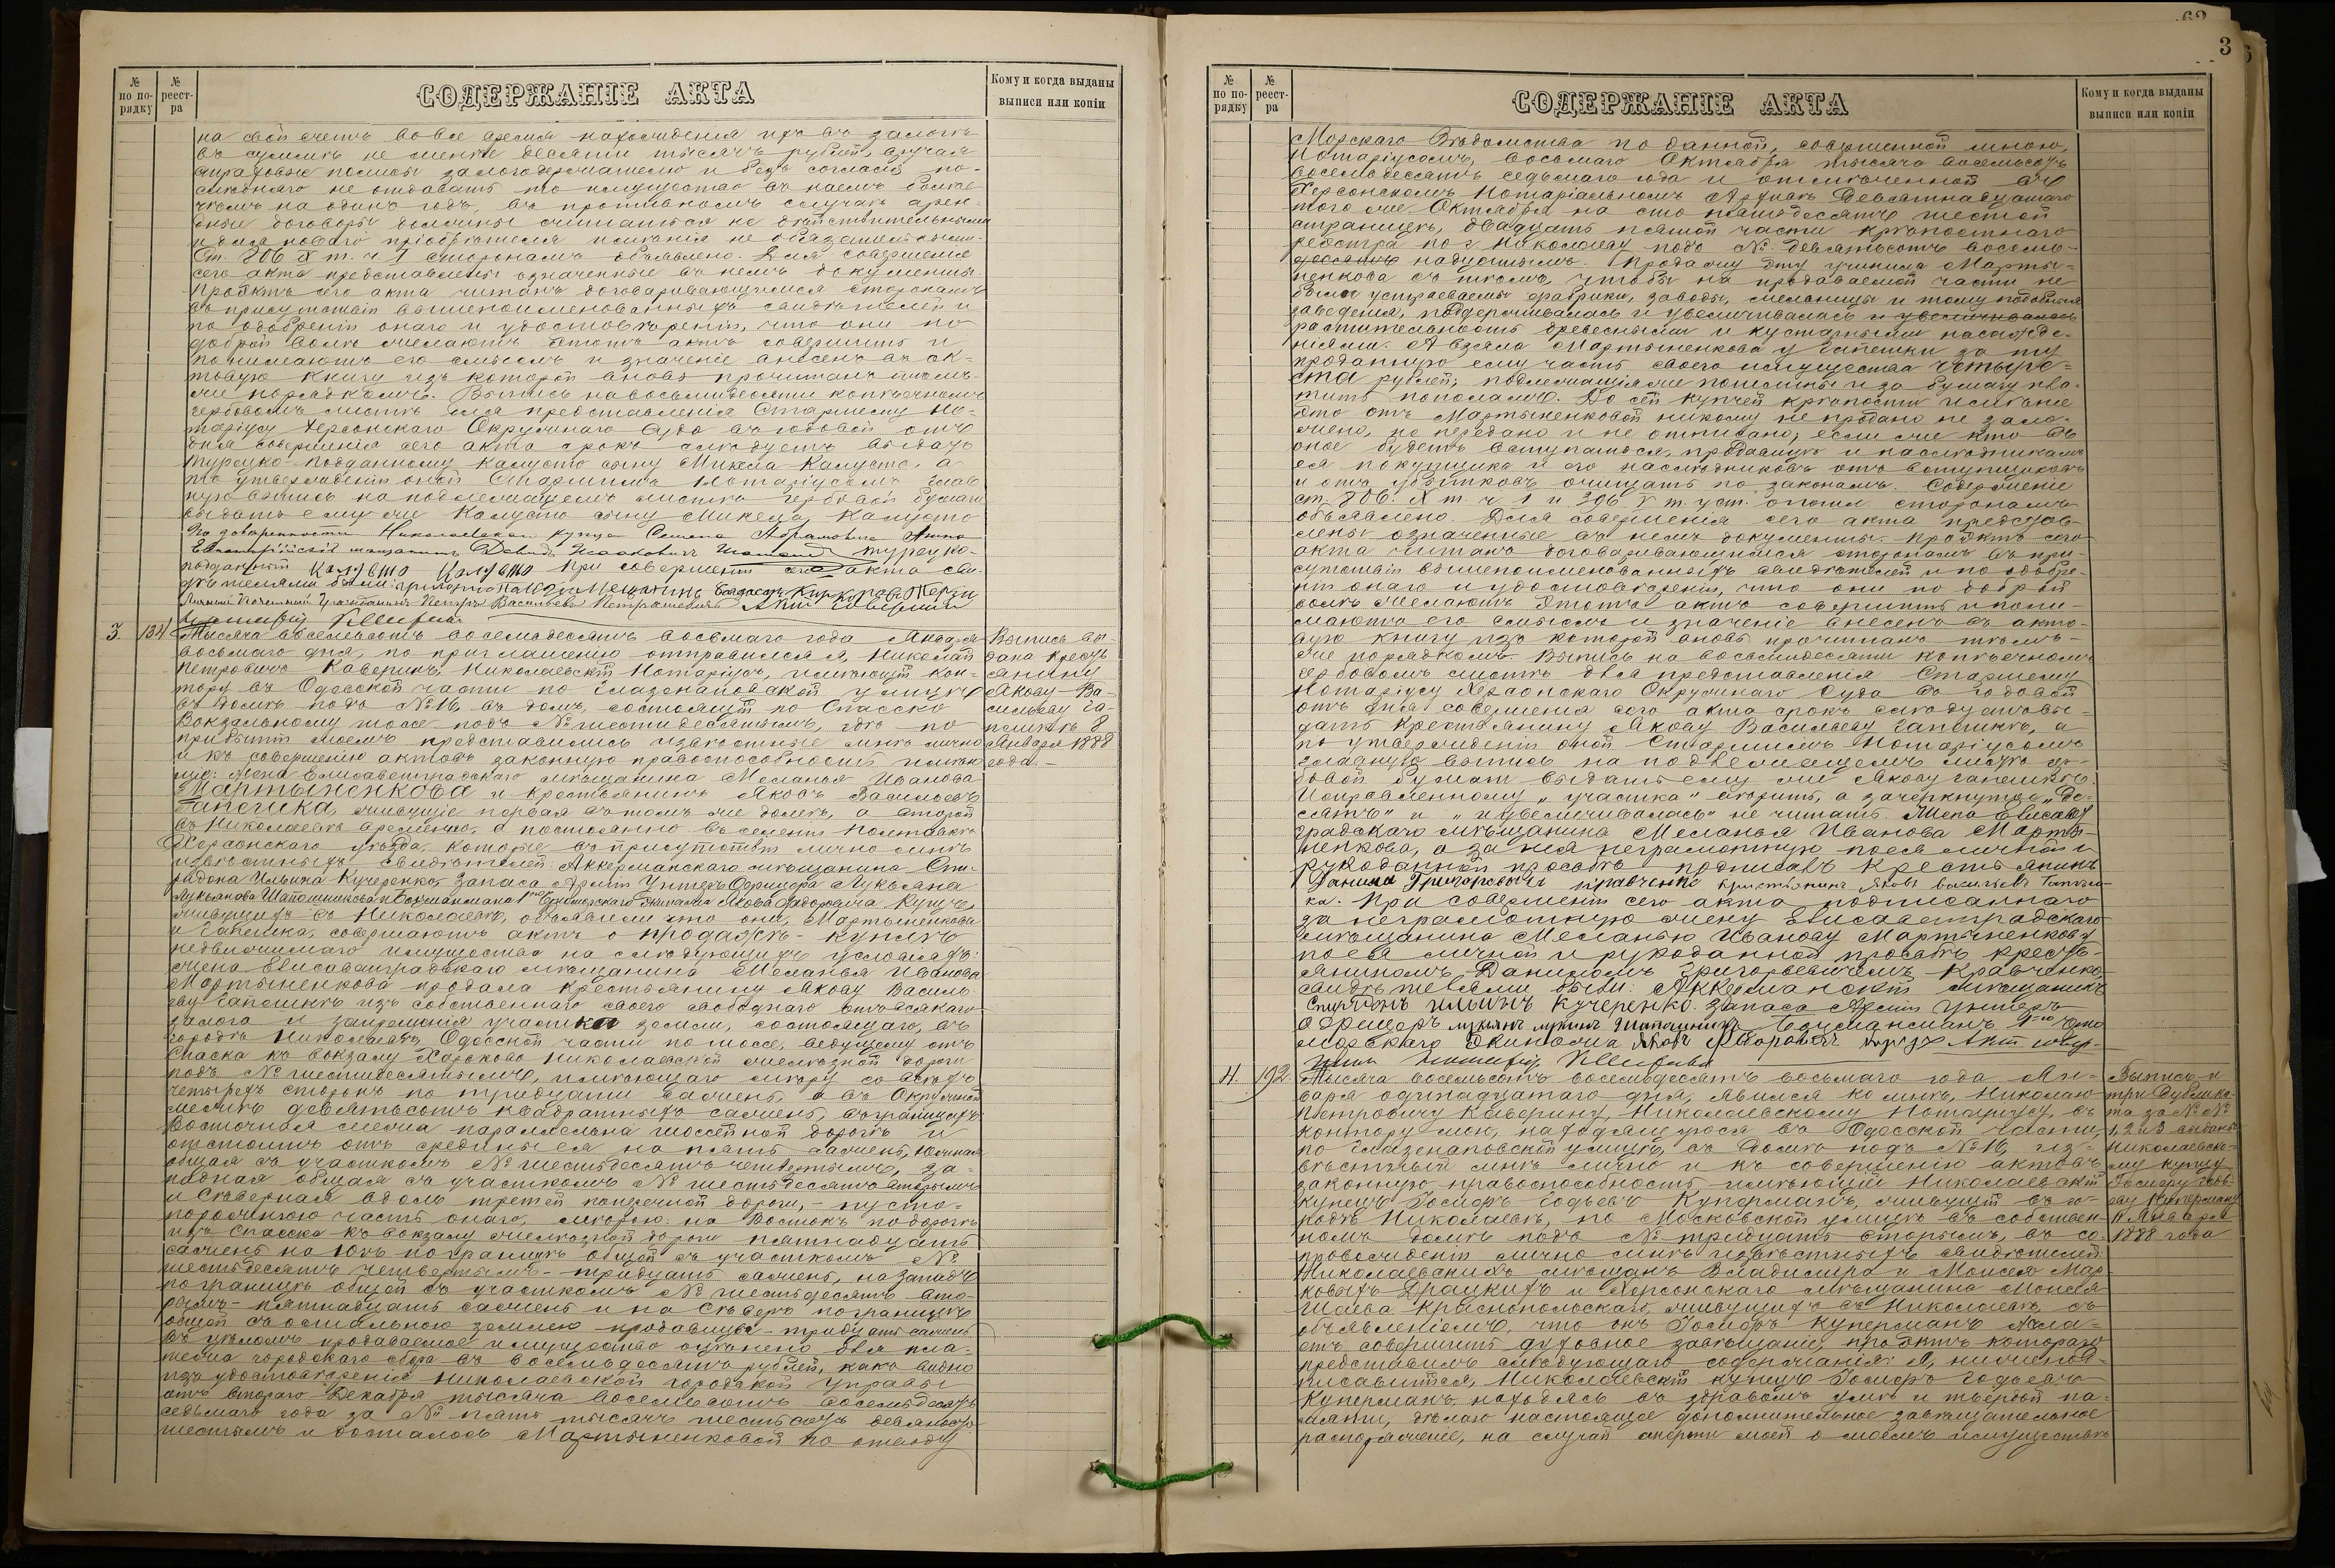 № по по-рядку
№ реест-ра
СОДЕРЖАНІЕ АКТА
Кому и когда выданы выписи или копіи
на свой счетъ во все время нахожденія ихъ въ залогѣ
въ суммѣ не менѣе десяти тысячъ рублей, вручая
страховые полисы залогодержателю и безъ согласія по-
слѣдняго не отдавать то имущество въ наемъ болѣе
чѣмъ на одинъ годъ, въ противномъ случаѣ арен-
дные договоры должны считаться не дѣйствительными
и для новаго пріобрѣтателя имѣнія не обязательными.
Ст. 706 X т. ч. 1 сторонамъ объявлено. Для совершенія
сего акта представлены означенные въ немъ документы.
Проэктъ сего акта читанъ договаривающимся сторонамъ
въ присутствіи вышепоименованныхъ свидѣтелей и
по одобреніи онаго и удостовѣреніи, что они по
доброй волѣ желаютъ этотъ актъ совершить и
понимаютъ его смыслъ и значеніе внесенъ въ ак-
товую книгу изъ которой вновь прочитанъ тѣмъ-
же порядкомъ. Выпись на восьмидесяти копѣечномъ
гербовомъ листѣ для представленія Старшему Но-
таріусу Херсонскаго Окружнаго Суда въ годовой отъ
дня совершенія сего акта срокъ слѣдуетъ выдать
Турецко-подданному Калусто сыну Микела Калусто, а
по утвержденіи оной Старшимъ Нотаріусомъ глав
ную выпись на подлежащемъ листѣ гербовой бумаги
выдать ему же Калусто сыну Микела Калусто
По довѣренности Николаевскаго купца Семена Абрамовича
Евпаторійскій мѣщанинъ Давидъ Исааковичъ турецко-
подданный Калусто Калусто При совершеніи сего акта сви-
дѣтелями были:
Личный Почетный Гражданинъ Петръ Васильевъ Петрашевичъ Актъ совершилъ
3. 134 Тысяча восемьсотъ восемьдесятъ восьмаго года Января
восьмаго дня, по приглашенію отправился я, Николай
Петровичъ Каверинъ, Николаевскій Нотаріусъ, имѣющій кон-
тору въ Одесской части по Глазенаповской улицѣ
въ домѣ подъ №16, въ домъ, состоящій по Спасско
Вокзальному шоссе подъ № шестидесятымъ, гдѣ по
прибытіи моемъ представились извѣстные мнѣ лично
и къ совершенію актовъ законную правоспособность имѣю-
щіе: Жена Елисаветградскаго мѣщанина Меланья Иванова
Мартыненкова и крестьянинъ Яковъ Васильевъ
Гапешка, живущіе первая въ томъ же домѣ, а второй
въ Николаевѣ временно, а постоянно въ селеніи Полтавкѣ
Херсонскаго уѣзда, которые въ присутствіи лично мнѣ
извѣстныхъ свидѣтелей: Аккерманскаго мѣщанина Спи-
ридона Ильина Кучеренко, запаса Арміи Унтеръ Офицера Лукьяна
Лукьянова Шапошникова и Боцманмана 1го Черноморскаго Экипажа Якова Федоровича Куцъ,
живущихъ въ Николаевѣ, объявили что они, Мартыненкова
и Гапешка, совершаютъ актъ о продажѣ-куплѣ
недвижимаго имущества на слѣдующихъ условіяхъ:
жена Елисаветградскаго мѣщанина Меланья Иванова
Мартыненкова продала крестьянину Якову Василь
еву Гапешкѣ изъ собственнаго своего свободнаго отъ всякаго
залога и запрещенія участка земли, состоящаго, въ
городѣ Николаевѣ, Одесской части по шоссе, ведущему отъ
Спаска къ вокзалу Харьково Николаевской желѣзной дороги
подъ № шестидесятымъ, имѣющаго мѣру со всѣхъ
четырехъ сторонъ по тридцати саженъ, а въ Окружной
межѣ девятьсотъ квадратныхъ саженъ, въ границахъ:
Восточная межа параллельна шоссейной дорогѣ и
отстоитъ отъ средины ея на пять саженъ, южная
общая съ участкомъ № шестьдесятъ четвертымъ, за-
падная общая съ участкомъ № шестьдесятъ вторымъ
и Сѣверная вдоль третей поперечной дороги, - пусто-
порожнюю часть онаго, мѣрою: на Востокъ по дорогѣ
изъ Спасска къ вокзалу желѣзной дороги пятнадцать
саженъ на Югъ по границѣ общей съ участкомъ №
шестьдесятъ четвертымъ - тридцать саженъ, на Западъ
по границѣ общей съ участкомъ № шестьдесятъ вто-
рымъ - пятнадцать саженъ и на Сѣверъ по границѣ
общей съ остальною землею продавицы - тридцать саженъ
въ цѣломъ продаваемое имущество оцѣнено для пла-
тежа городскаго сбора въ восемьдесятъ рублей, какъ видно
изъ удостовѣренія Николаевской городской Управы
отъ втораго Декабря тысяча восемьсотъ восемьдесятъ
седьмаго года за № пять тысячъ шестьсотъ девяносто
шестымъ и досталось Мартыненковой по отводу
Выпись вы-
дана кресть
янину
Якову Ва-
сильеву Га-
пешкѣ 8
Января 1888
года. -
3
№ по по-рядку
№ реест-ра
СОДЕРЖАНІЕ АКТА
Кому и когда выданы выписи или копіи
Морскаго Вѣдомства по данной, совершенной мною,
Нотаріусомъ, восьмаго Октября тысяча восемьсотъ
восемьдесятъ седьмаго года и отмѣченной въ
Херсонскомъ Нотаріальномъ Архивѣ Девятнадцатаго
того же Октября на сто пятьдесятъ шестой
страницѣ, двадцать пятой части крѣпостнаго
реэстра по г. Николаеву подъ № девятьсотъ восемь-
десятъ надцатымъ. Продажу эту учинила Марты-
ненкова съ тѣмъ, чтобы на продаваемой части не
были устраеваемы фабрики, заводы, мельницы и тому подобныя
заведенія, поддерживалась и увеличивалась и увеличивалась
растительность древесными и кустарными насажде-
ніями. А взяла Мартыненкова у Гапешки за ту
проданную ему часть своего имущества четыре-
ста рублей; подлежащія же пошлины и за бумагу пла-
тить пополамъ. До сей купчей крѣпости имѣніе
это отъ Мартыненковой никому не продано не зало-
жено, не передано и не отписано, если же кто въ
оное будетъ вступаться, продавицѣ и наслѣдникамъ
ея покупщика и его наслѣдниковъ отъ вступщиковъ
и отъ убытковъ очищать по законамъ. Содержаніе
ст. 706. X т. ч. 1 и 306 V т. уст. о пошл сторонамъ
объявлено. Для совершенія сего акта представ-
лены означенные въ немъ документы. Проэктъ сего
акта читанъ договаривающимся сторонамъ въ при-
сутствіи вышепоименованныхъ свидѣтелей и по одобре-
ніи онаго и удостовѣреніи, что они по доброй
волѣ желаютъ этотъ актъ совершить и пони-
маютъ его смыслъ и значеніе внесенъ въ акто-
вую книгу изъ которой вновь прочитанъ тѣмъ-
же порядкомъ. Выпись на восьмидесяти копѣечномъ
гербовомъ листѣ для представленія Старшему
Нотаріусу Херсонскаго Окружнаго Суда въ годовой
отъ дня совершенія сего акта срокъ слѣдуетъ вы-
дать крестьянину Якову Васильеву Гапешкѣ, а
по утвержденіи оной Старшимъ Нотаріусомъ
главную выпись на подлежащемъ листѣ гер-
бовой бумаги выдать ему же Якову Гапешкѣ.
Исправленному „участка" вѣрить, а зачеркнутое „де-
сятъ" и „и увеличивалась" не читать. Жена Елисавет
градскаго мѣщанина Меланья Иванова Марты-
ненкова, а за нея неграмотную по ея личной и
рукоданной просьбѣ подписалъ крестьянинъ
Данило Григорьевичъ Кравченко крестьянинъ Яковъ Васильевъ Гапеш-
ка. При совершеніи сего акта подписаннаго
за неграмотную жену Елисаветградскаго
мѣщанина Меланью Иванову Мартыненкову
по ея личной и рукоданной просьбѣ кресть-
яниномъ Даниломъ Григорьевичемъ Кравченко
свидѣтелями были: Аккерманскій мѣщанинъ
Спиридонъ Ильинъ Кучеренко. Запаса Арміи Унтеръ
Офицеръ Лукьянъ Лукинъ Шапошниковъ Боцманманъ 1го Черно
морскаго Экипажа Яковъ Федоровичъ Куцъ Актъ совер-
шилъ
4. 192. Тысяча восемьсотъ восемьдесятъ восьмаго года Ян-
варя одинадцатаго дня, явился ко мнѣ, Николаю
Петровичу Каверину, Николаевскому Нотаріусу, въ
контору мою, находящуюся въ Одесской части,
по Глазенаповской улицѣ, въ домѣ подъ №16, из-
вѣстный мнѣ лично и къ совершенію актовъ
законную правоспособность имѣющій Николаевскій
купецъ Іосифъ Годьевъ Куперманъ, живущій въ го-
родѣ Николаевѣ, по Московской улицѣ въ собствен-
номъ домѣ подъ № тридцать вторымъ, въ со-
провожденіи лично мнѣ извѣстныхъ свидѣтелей:
Николаевскихъ мѣщанъ Владимира и Моисея Мар
ковыхъ Драцкихъ и Херсонскаго мѣщанина Моисея
Шаева Краснопольскаго, живущихъ въ Николаевѣ, съ
объявленіемъ, что онъ Іосифъ Куперманъ жела-
етъ совершить духовное завѣщаніе, проэктъ котораго
представилъ слѣдующаго содержанія: Я, нижепод-
писавшійся, Николаевскій купецъ Іосифъ Годьевъ
Куперманъ, находясь въ здравомъ умѣ и твердой па-
мяти, дѣлаю настоящее дополнительное завѣщательное
распоряженіе, на случай смерти моей о моемъ имуществѣ
Выпись и
три Дублика-
та за №№
1, 2 и 3 выданы
Николаевско-
му купцу
Іосифу Годь-
еву Куперману
11 Января
1888 года